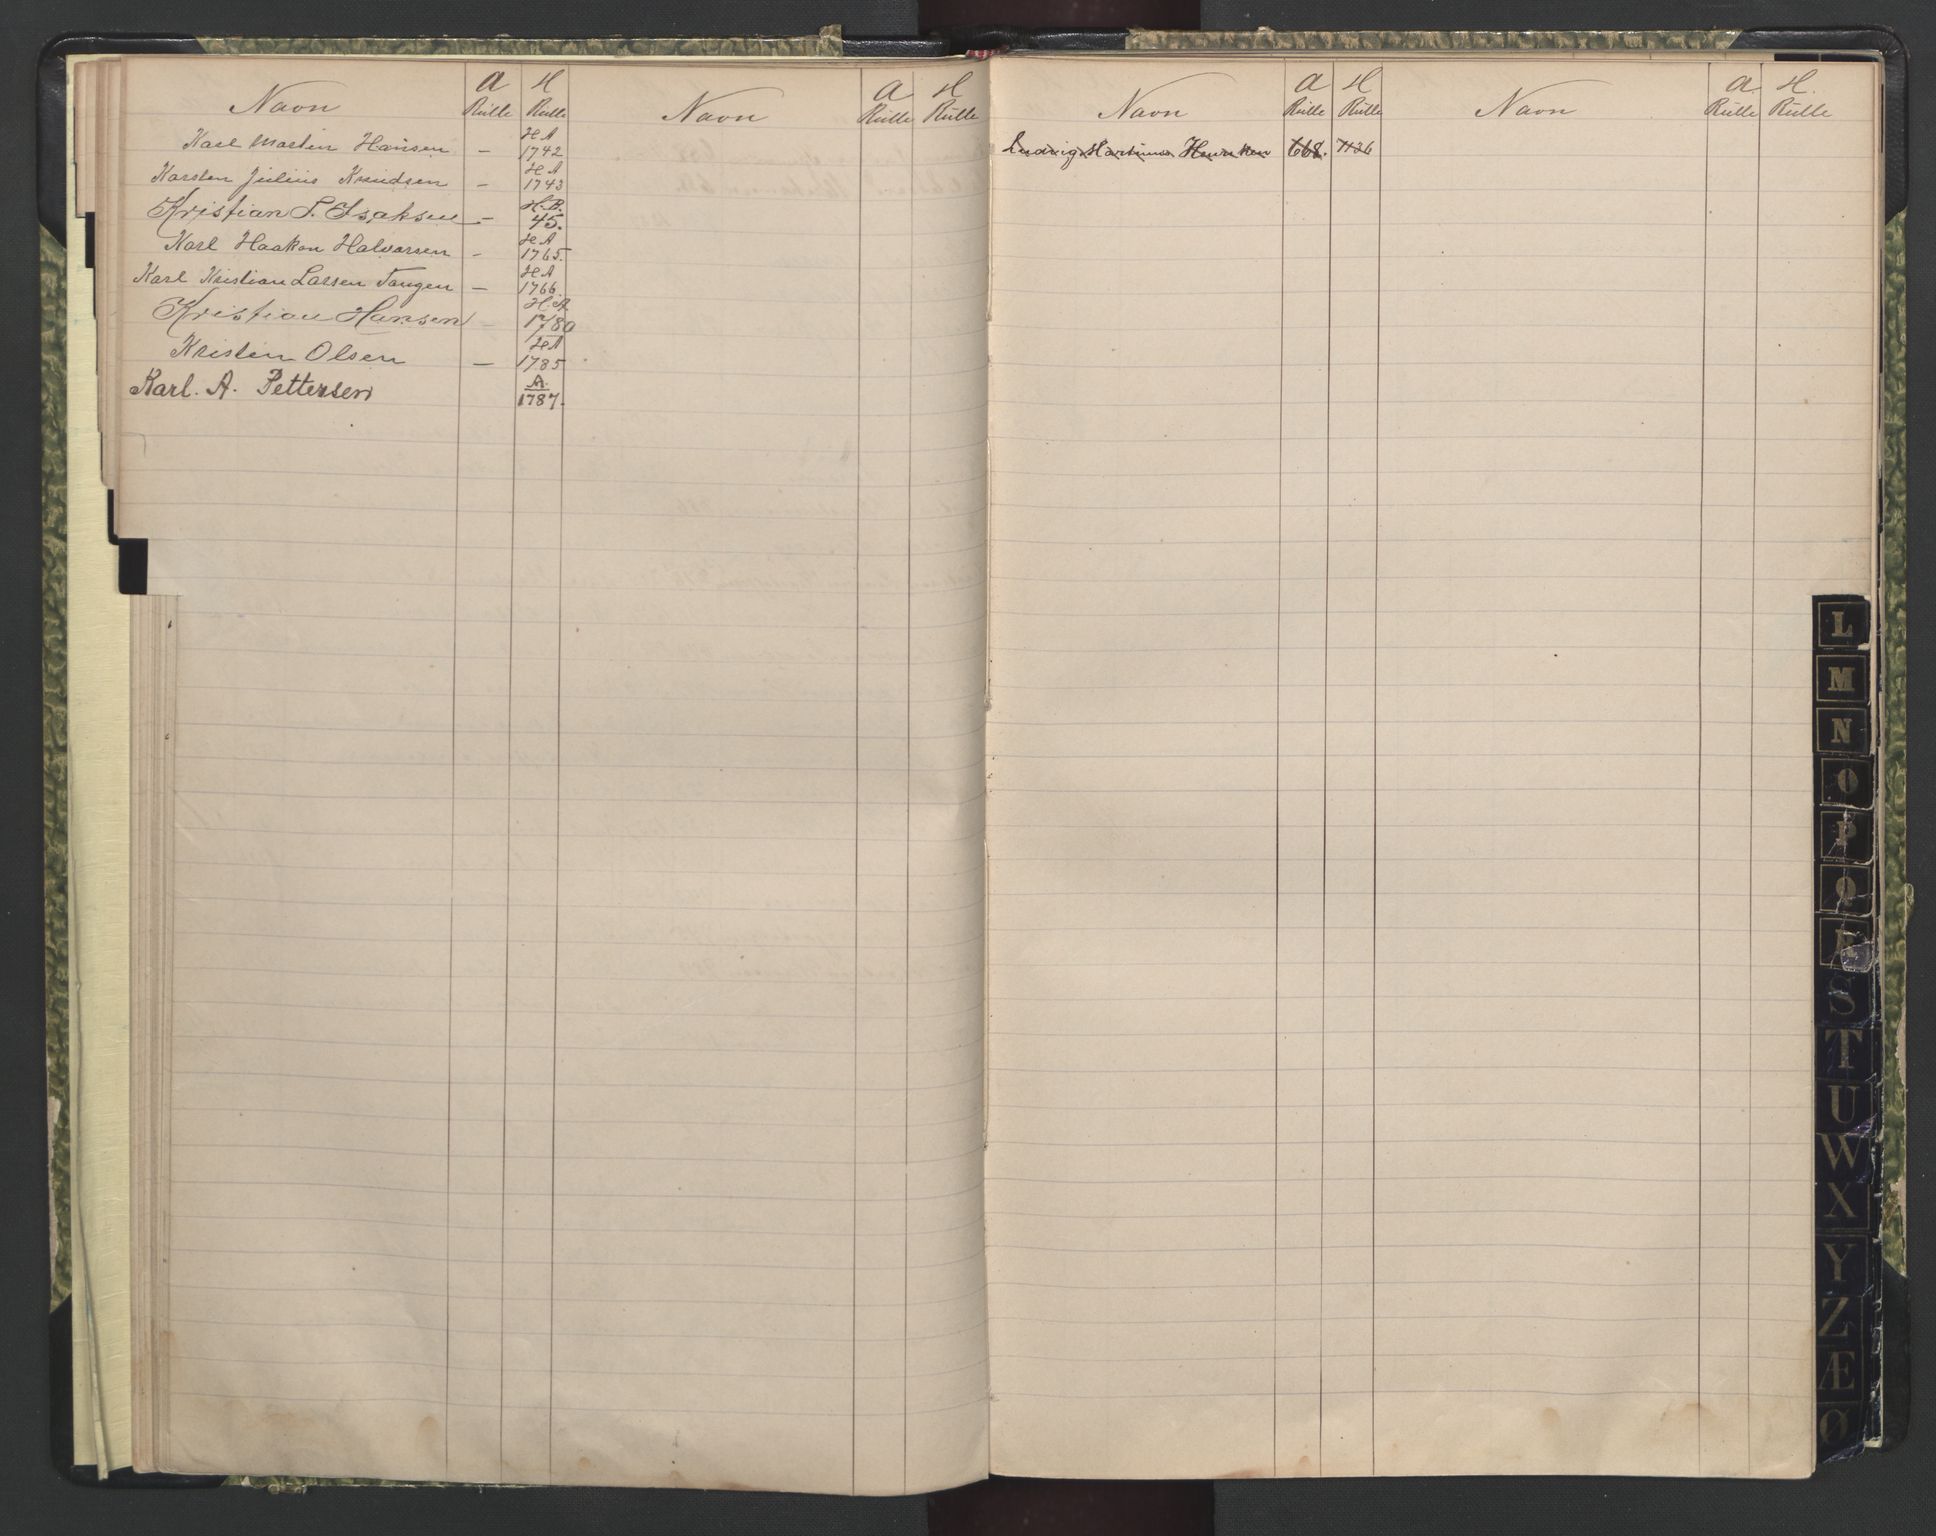 Navn A Rulle H Rulle Navn A Rulle H Rulle
Karl Martin Hansen - H A 1742
Karsten Julius Knudsen - H A 1743
Kristian S. Isaksen - H.B. 45.
Karl Haakon Halvorsen - H A 1765.
Karl Kristian Larsen Tangen - H A 1766.
Kristian Hansen - H.A. 1780
Kristen Olsen - H A 1785
Karl. A. Pettersen A. 1787.
Navn A Rulle H Rulle Navn A. Rulle H. Rulle
Ludvig Martinus 668. 1136
L
M
N
O
P
Q
R
S
T
U
W
X
Y
Z
Æ
Ø